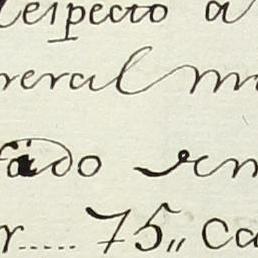 respecto a
neral m
fado en
r..... 75,, Ca